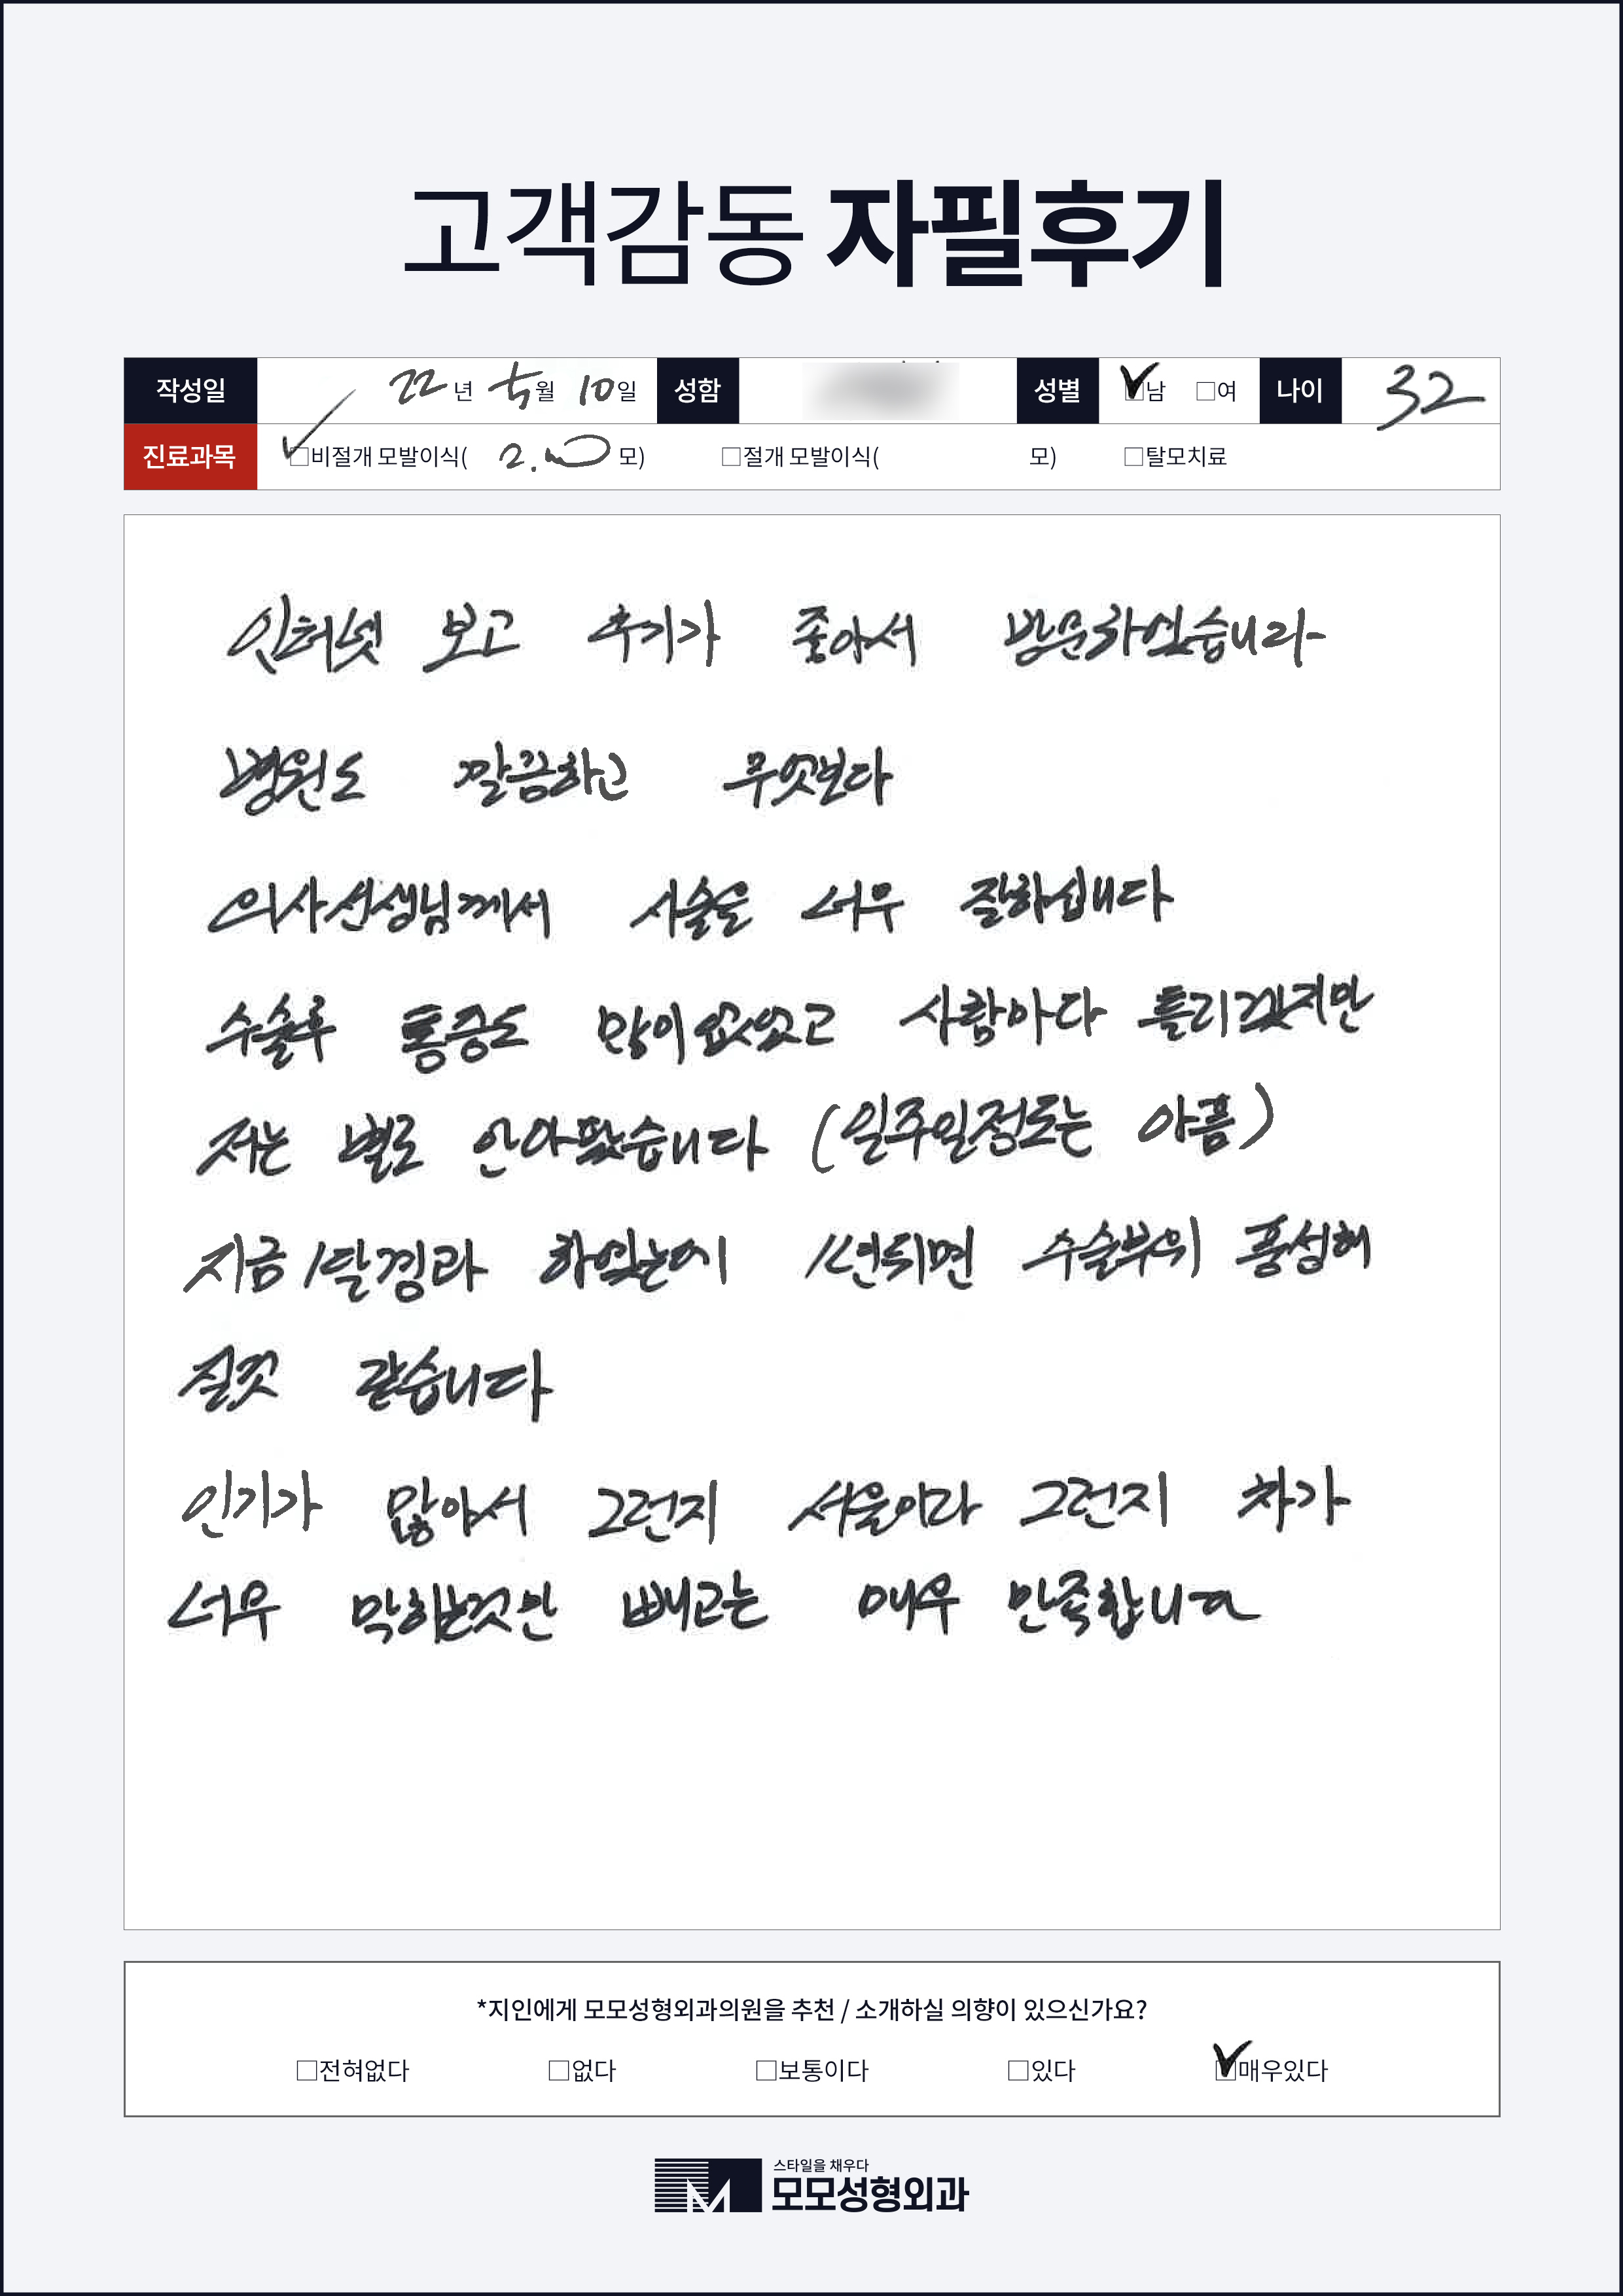 고객감동 자필후기
작성일 22년 5월 10일 성함 성별 ☑남 □여 나이 32
진료과목 ☑비절개 모발이식( 2.000 모) □절개 모발이식( 모) □탈모치료
인터넷 보고 후기가 좋아서 방문하였습니다
병원도 깔끔하고 무엇보다
의사선생님께서 시술을 너무 잘하십니다
수술후 통증도 많이 없었고 사람마다 틀리겠지만
저는 별로 안아팠습니다 (일주일정도는 아픔)
지금 1달경과 하였는데 1년되면 수술부위 풍성해
질것 같습니다
인기가 많아서 그런지 서울이라 그런지 차가
너무 막히는것만 빼고는 매우 만족합니다
*지인에게 모모성형외과의원을 추천 / 소개하실 의향이 있으신가요?
□전혀없다 □없다 □보통이다 □있다 ☑매우있다
스타일을 채우다
모모성형외과